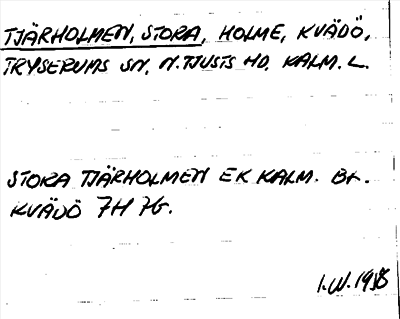 TJÄRHOLMEN, STORA, HOLME, KVÄDÖ,
TRYSERUMS SN, N. TJUSTS HD, KALM. L.
STORA TJÄRHOLMEN EK KALM. BL.
KVÄDÖ 7H 7G.
I.W. 1958